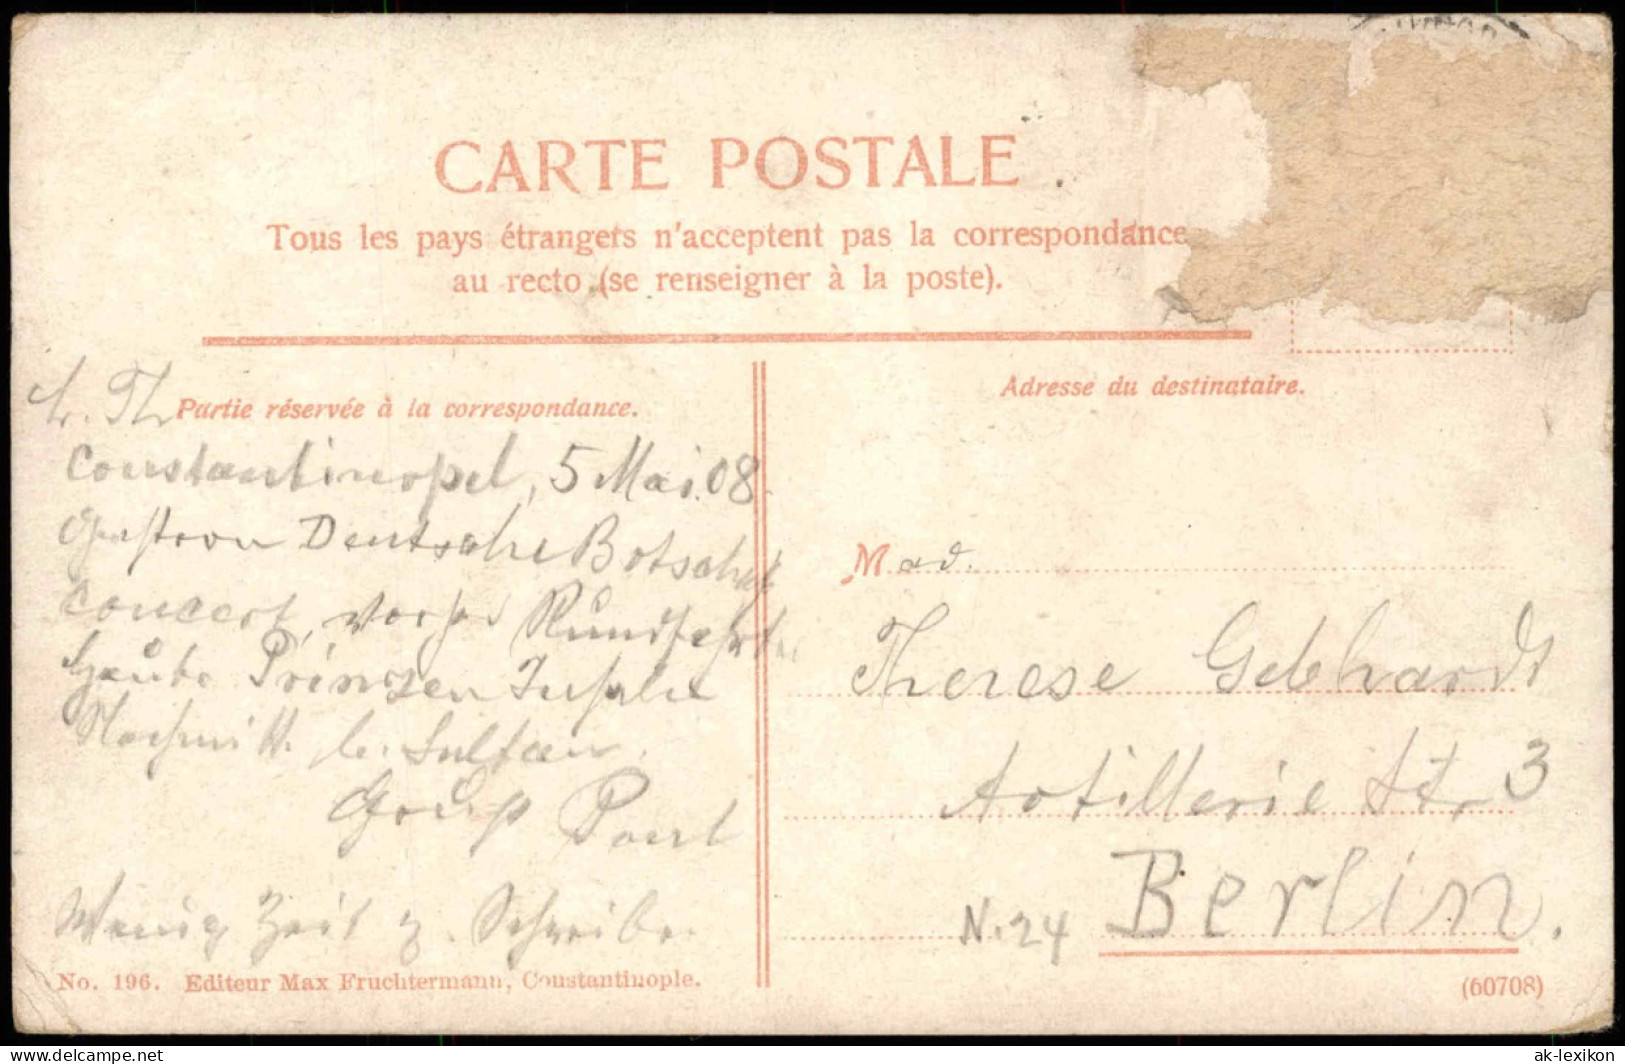 CARTE POSTALE
Tous les pays étrangers n'acceptent pas la correspondance
au recto (se renseigner à la poste).
L. Th
Partie réservée à la correspondance.
Adresse du destinataire.
Constantinopel, 5 Mai 08.
Gestern Deutsche Botschaft
Concert, vorher Rundfahrt
heute Prinzen Inseln
Nachmitt. b. Sultan.
Gruß Paul
Wenig Zeit z. Schreiben
Mad.
Therese Gebhardt
Artillerie Str 3
N. 24 Berlin.
No. 196. Editeur Max Fruchtermann, Constantinople.
(60708)
ak-lexikon
delcampe.net